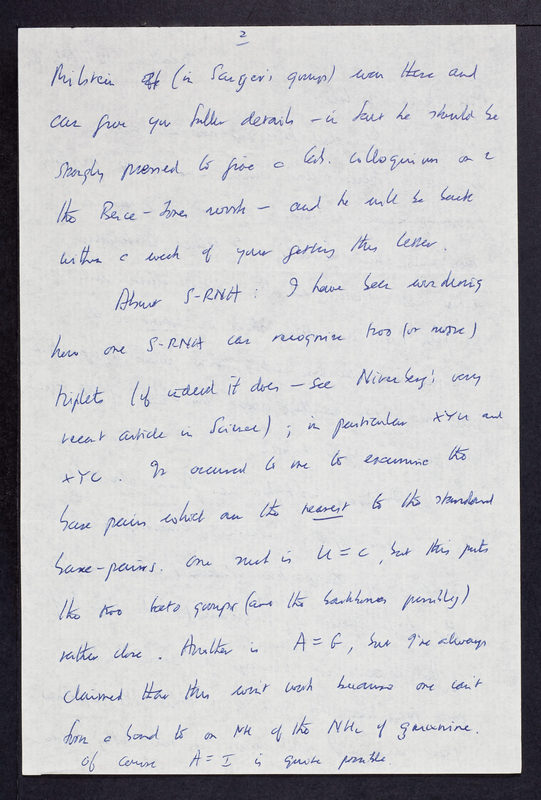 2
Milstein (in Sanger's group) was there and
can give you fuller details – in fact he should be
strongly pressed to give a Lab. colloquium on
the Bence-Jones work – and he will be back
within a week of your getting this letter.
About S-RNA: I have been wondering
how one S-RNA can recognise two (or more)
triplets (if indeed it does – see Nirenberg's very
recent article in Science); in particular XYU and
XYC. It occurred to me to examine the
base pairs which are the nearest to the standard
base-pairs. One such is U=C, but this puts
the two keto groups (and the backbones possibly)
rather close. Another is A=G, but I've always
claimed that this won't work because one can't
form a bond to one NH of the NH2 of guanine.
Of course A=I is quite possible.